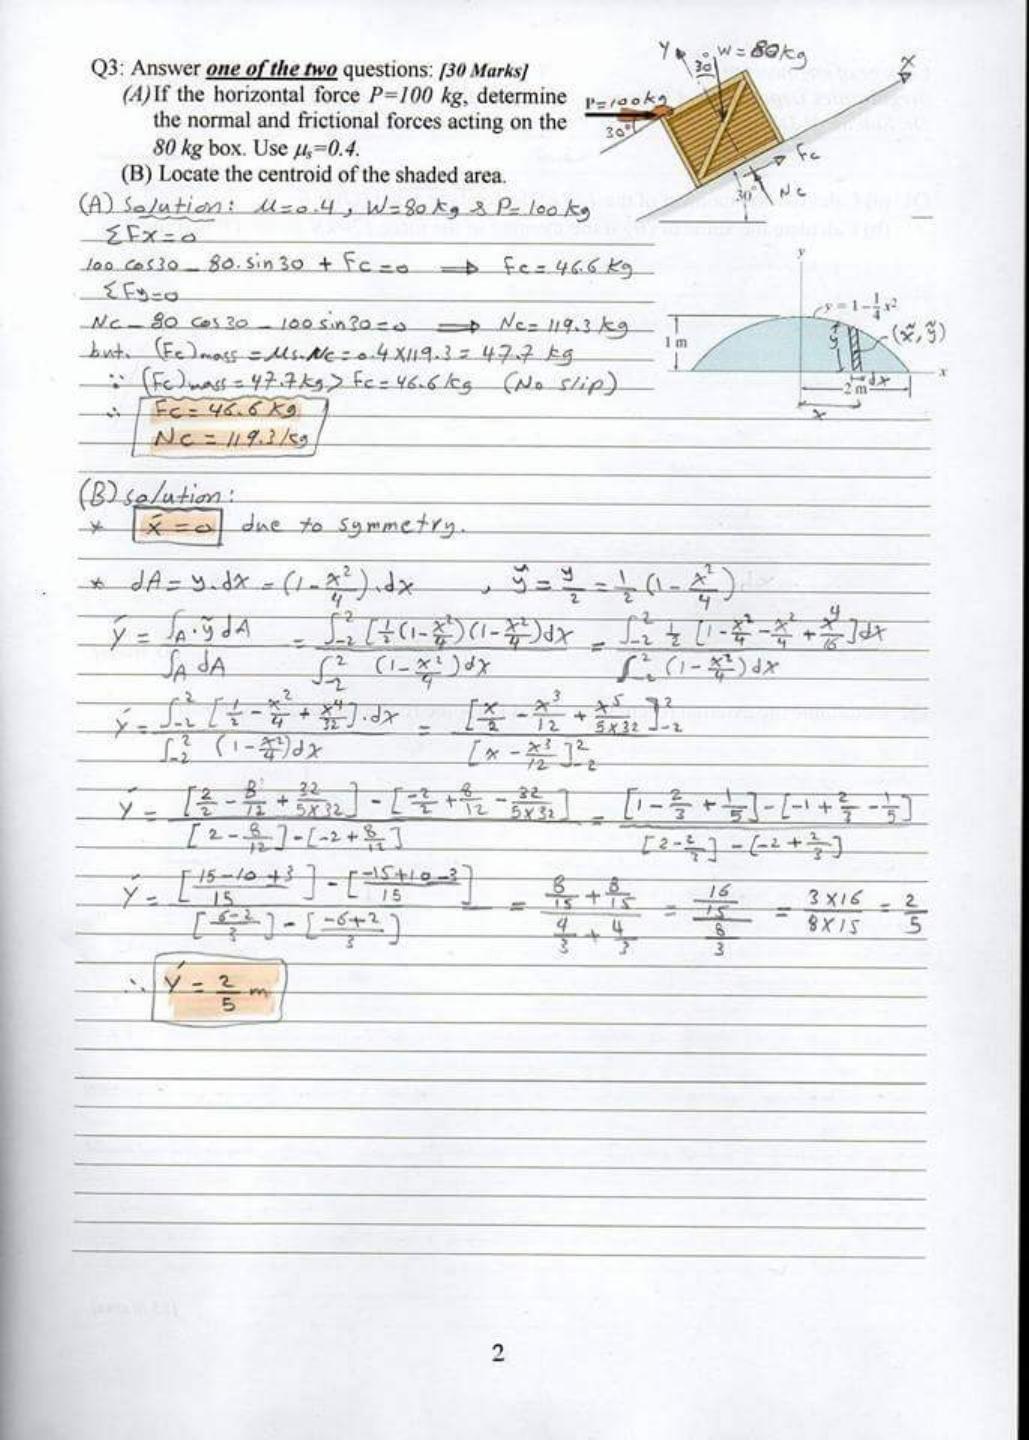 Q3: Answer one of the two questions: [30 Marks]
(A) If the horizontal force P=100 kg, determine
the normal and frictional forces acting on the
80 kg box. Use μs=0.4.
(B) Locate the centroid of the shaded area.
Y
30
W = 80kg
X
P=100kg
30°
Fc
30°
Nc
(A) Solution: M=0.4, W=80 kg & P=100 kg
ΣFx=0
100 cos30 - 80.sin30 + Fc=0 ⟹ Fc= 46.6 kg
ΣFy=0
Nc - 80 cos30 - 100 sin30=0 ⟹ Nc= 119.3 kg
but. (Fc)mass = Ms.Nc = 0.4×119.3 = 47.7 kg
∵ (Fc)mass = 47.7kg > Fc= 46.6 kg (No slip)
∴ Fc = 46.6 kg
Nc = 119.3 kg
y
y = 1 - 1/4 x²
(x̃, ỹ)
1 m
y
x
dx
2 m
x
(B) solution:
* x́ = 0 due to symmetry.
* dA = y.dx = (1 - x²/4).dx , ỹ = y/2 = 1/2 (1 - x²/4)
ý = ∫A.ỹ dA / ∫A dA = ∫-2^2 [1/2(1-x²/4)(1-x²/4)dx / ∫-2^2 (1-x²/4)dx = ∫-2^2 1/2 [1-x²/4-x²/4+x⁴/16]dx / ∫-2^2 (1-x²/4)dx
ý = ∫-2^2 [1/2 - x²/4 + x⁴/32].dx / ∫-2^2 (1-x²/4)dx = [x/2 - x³/12 + x⁵/5×32]-2^2 / [x - x³/12]-2^2
ý = [2/2 - 8/12 + 32/5×32] - [-2/2 + 8/12 - 32/5×32] / [2 - 8/12] - [-2 + 8/12] = [1 - 2/3 + 1/5] - [-1 + 2/3 - 1/5] / [2 - 2/3] - [-2 + 2/3]
ý = [15-10+3/15] - [-15+10-3/15] / [6-2/3] - [-6+2/3] = 8/15 + 8/15 / 4/3 + 4/3 = 16/15 / 8/3 = 3×16/8×15 = 2/5
∴ ý = 2/5 m
2